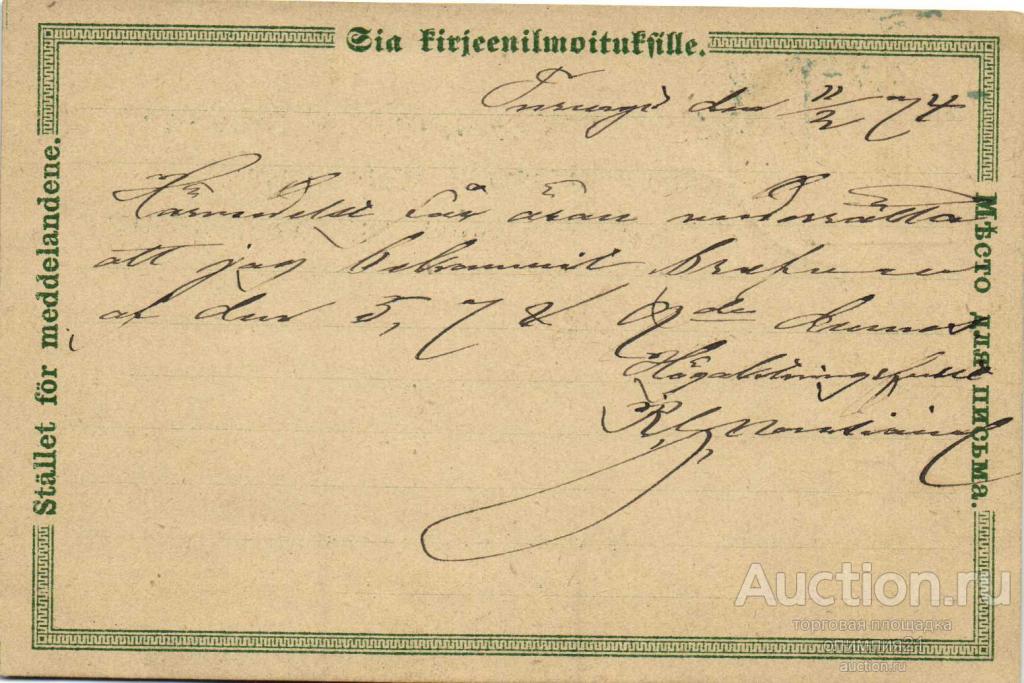 Sia kirjeenilmoituksille.
Stället för meddelandene.
Мѣсто для письма.
den 11/2 74
Härmedelst får äran underrätta
att jag bekommit brefven
af den 5, 7 & 9de dennes
Högaktningsfullt
Auction.ru
торговая площадка
олимпия21
auction.ru